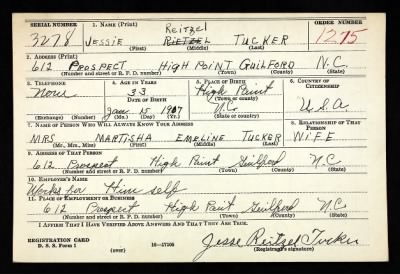 SERIAL NUMBER 1. NAME (Print) ORDER NUMBER
Reitzel
3278 JESSIE RIETZEL TUCKER 1275
(First) (Middle) (Last)
2. ADDRESS (Print)
612 PROSPECT HIGH POINT GUILFORD N.C.
(Number and street or R. F. D. number) (Town) (County) (State)
3. TELEPHONE 4. AGE IN YEARS 5. PLACE OF BIRTH 6. COUNTRY OF CITIZENSHIP
None 33 High Point
DATE OF BIRTH (Town or county)
Jan 15 1907 N.C. U.S.A.
(Exchange) (Number) (Mo.) (Day) (Yr.) (State or country)
7. NAME OF PERSON WHO WILL ALWAYS KNOW YOUR ADDRESS 8. RELATIONSHIP OF THAT PERSON
MRS MARTISHA EMELINE TUCKER WIFE
(Mr., Mrs., Miss) (First) (Middle) (Last)
9. ADDRESS OF THAT PERSON
612 Prospect High Point Guilford N.C.
(Number and street or R. F. D. number) (Town) (County) (State)
10. EMPLOYER'S NAME
Works for Him self
11. PLACE OF EMPLOYMENT OR BUSINESS
612 Prospect High Point Guilford N.C.
(Number and street or R. F. D. number) (Town) (County) (State)
I AFFIRM THAT I HAVE VERIFIED ABOVE ANSWERS AND THAT THEY ARE TRUE.
REGISTRATION CARD Jesse Reitzel Tucker
D. S. S. Form 1 (over) 16—17105 (Registrant's signature)